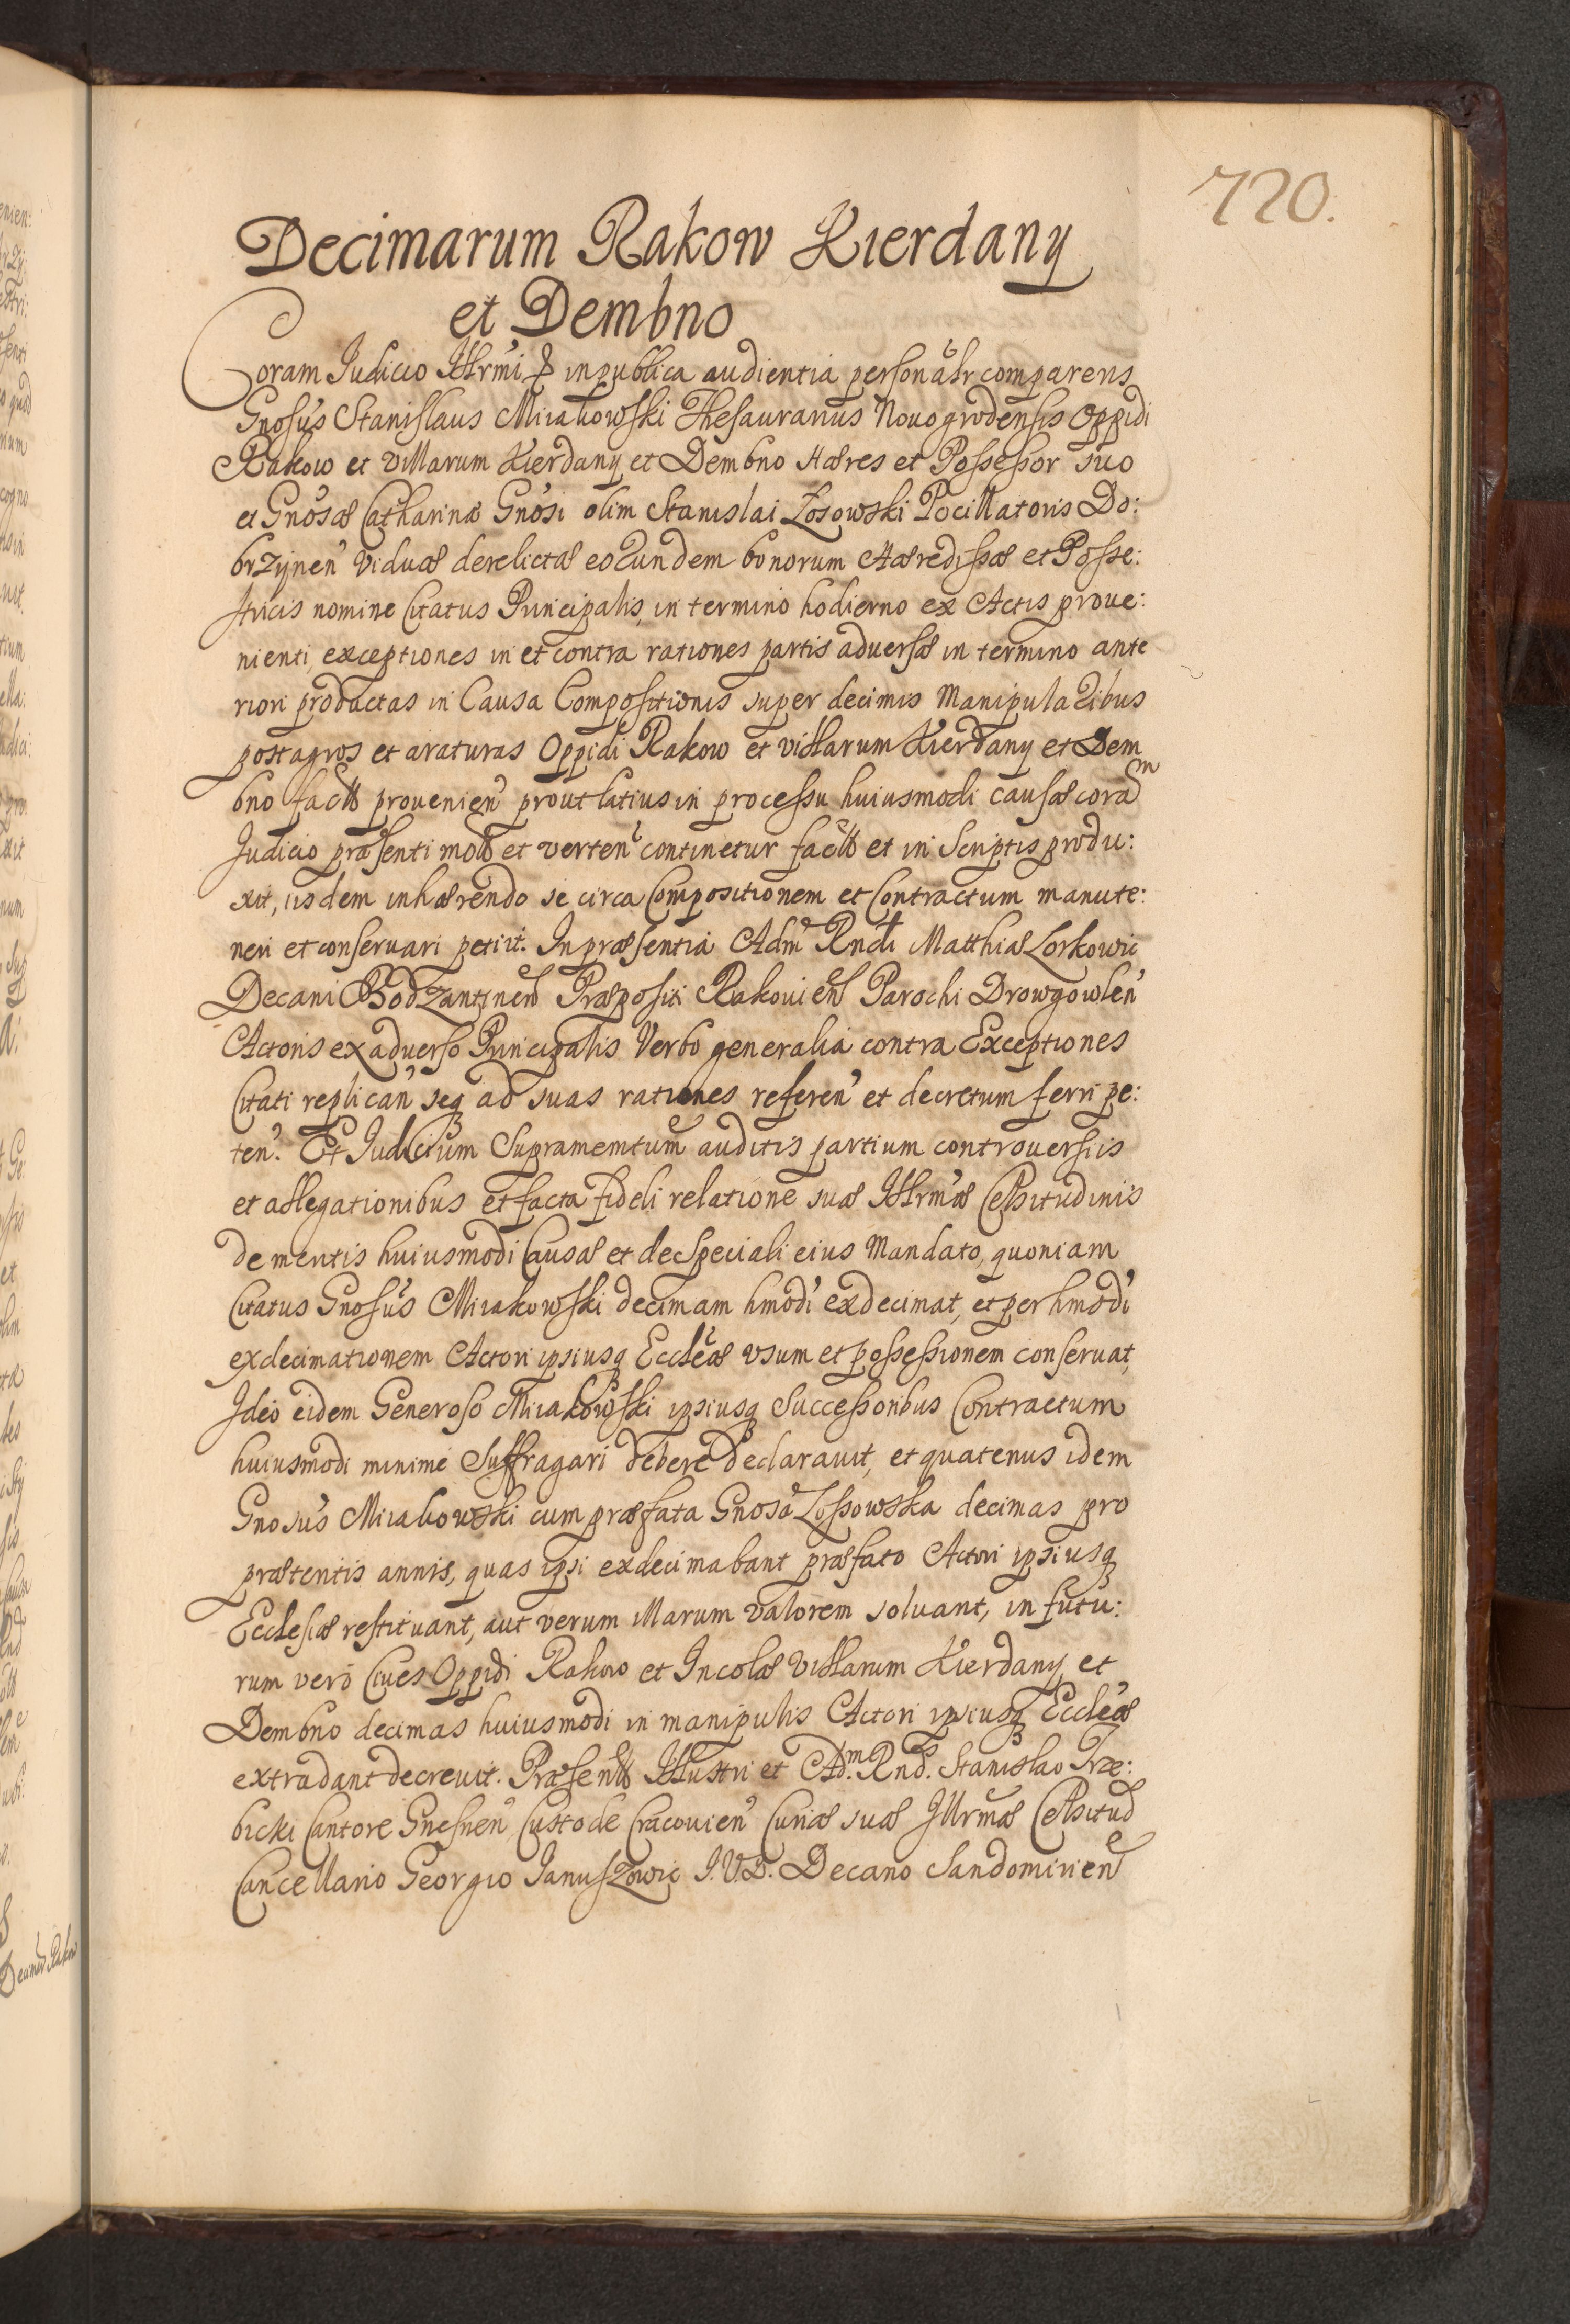 720.
Decimarum Rakow Kierdany
et Dembno
Coram Judicio Illrmi & in publica audientia personalr comparens
Gnosus Stanislaus Mirakowski Thesaurarius Nouogrodensis Oppidi
Rakow et Villarum Kierdany et Dembno Hæres et Possessor suo
et Gnosæ Catharinæ Gnosi olim Stanislai Zosowski Pocillatoris Do:
brzynen Viduæ derelictæ eorundem bonorum Hæredissæ et Posse:
stricis nomine Citatus Principalis, in termino hodierno ex Actis proue:
nienti, exceptiones in et contra rationes partis aduersæ in termino ante
riori productas in Causa Compositionis super decimis Manipulalibus
post agros et araturas Oppidi Rakow et villarum Kierdany et Dem
bno prouenien prout latius in processu huiusmodi causæ coram
Judicio præsenti et verten continetur et in Scriptis produ:
xit, iisdem inhærendo se circa Compositionem et Contractum manute:
neri et conseruari petiit. In præsentia Adm Rndi Matthiæ Lorkowic
Decani Bodzantinen Præpositi Rakouien Parochi Drowgowlen
Actoris ex aduerso Principalis Verbo generalia contra Exceptiones
Citati replican seq ad suas rationes referen et decretum ferri pe:
ten. Et Judicium Supramemtum auditis partium controuersiis
et allegationibus et facta fideli relatione suæ Illrmæ Celsitudinis
de meritis huiusmodi Causæ et de Speciali eius Mandato, quoniam
Citatus Gnosus Mirakowski decimam hmodi exdecimat, et per hmodi
exdecimationem Actori ipsiusq Eccleæ vsum et possessionem conseruat,
Ideo eidem Generoso Mirakowski ipsiusq Successoribus Contractum
huiusmodi minime Suffragari debere declarauit, et quatenus idem
Gnosus Mirakowski cum præfata Gnosa Zossowska decimas pro
prætentis annis, quas ipsi exdecimabant præfato Actori ipsiusq
Ecclesiæ restituant, aut verum illarum valorem soluant, in futu:
rum vero Ciues Oppidi Rakow et Incolæ Villarum Kierdany et
Dembno decimas huiusmodi in manipulis Actori ipsiusq Eccleæ
extradant decreuit. Illustri et Adm. Rnd. Stanislao Træ:
bicki Cantore Gnesnen Custode Cracouien Curiæ suæ Illrmæ Celsitud
Cancellario Georgio Januszowic I.V.D. Decano Sandomirien